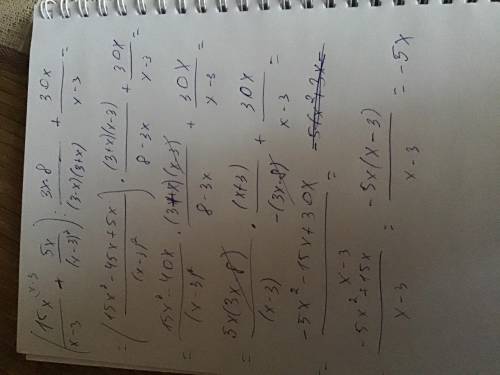 (15x^{x-3}/(x-3) + 5x/(x-3)²) : (3x-8)/((3-x)(3+x)) + 30x/(x-3) =
= (15x² - 45x + 5x)/(x-3)² · (3+x)(x-3)/(8-3x) + 30x/(x-3) =
= (15x² - 40x)/(x-3)² · (3+x)(x-3)/(8-3x) + 30x/(x-3) =
= 5x(3x-8)/(x-3) · (x+3)/(-(3x-8)) + 30x/(x-3) =
= (-5x² - 15x + 30x)/(x-3) =
(-5x² + 15x)/(x-3) = -5x(x-3)/(x-3) = -5x